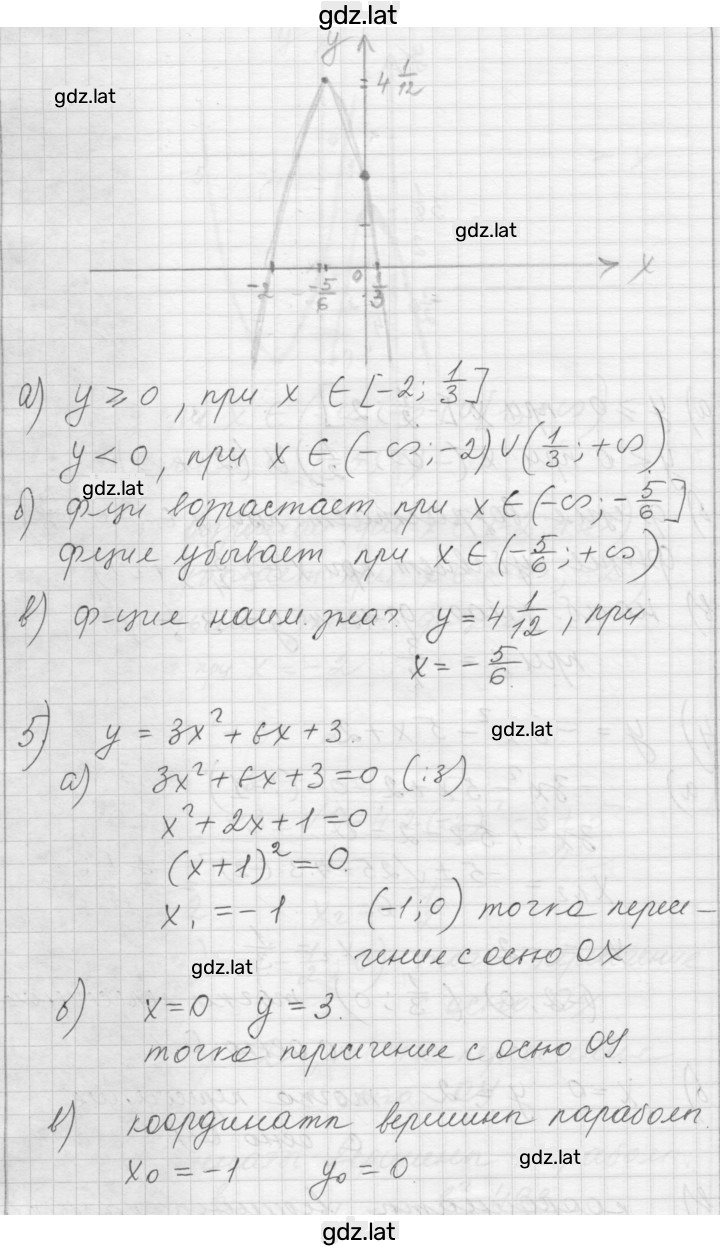 gdz.lat
y
gdz.lat
4 1/12
gdz.lat
-2 -5/6 0 1/3 x
а) y ⩾ 0, при x ∈ [-2; 1/3]
y < 0, при x ∈ (-∞; -2) ∪ (1/3; +∞)
gdz.lat
б) ф-ци возрастает при x ∈ (-∞; -5/6]
ф-ция убывает при x ∈ (-5/6; +∞)
в) ф-ция наим. знач. y = 4 1/12, при
x = -5/6
5) y = 3x² + 6x + 3.
gdz.lat
а) 3x² + 6x + 3 = 0 (:3)
x² + 2x + 1 = 0
(x + 1)² = 0.
x₁ = -1 (-1; 0) точка пересе-
чение с осью OX
gdz.lat
б) x = 0 y = 3.
точка пересечение с осью OY.
в) координати вершини параболи.
gdz.lat
x₀ = -1 y₀ = 0
gdz.lat